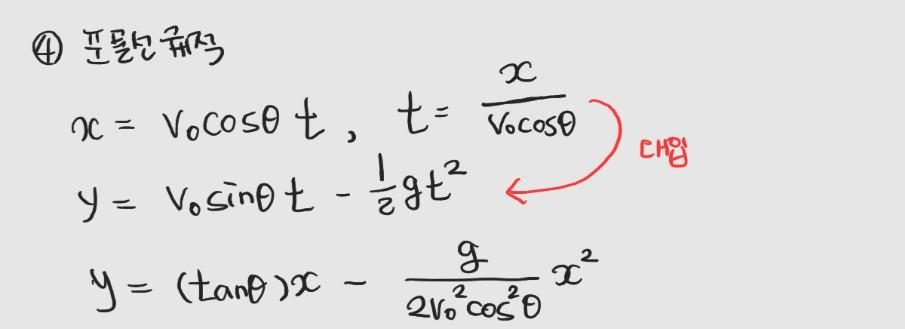 ④ 포물선 궤적
x = v₀cosθ t, t = x/(v₀cosθ)
대입
y = v₀sinθ t - 1/2 gt²
y = (tanθ)x - g/(2v₀²cos²θ) x²